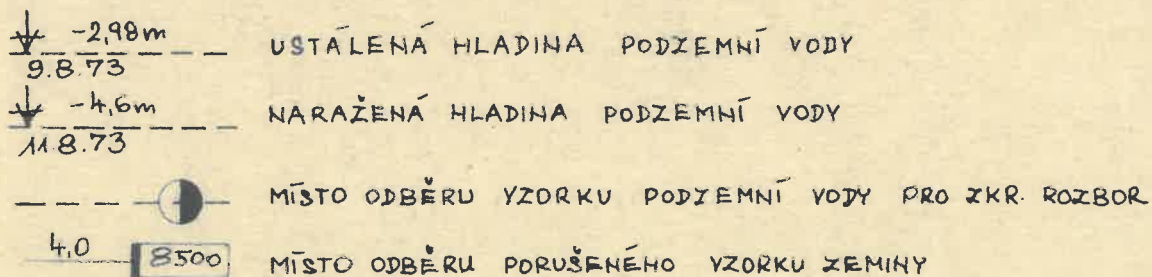 -2,98m
USTÁLENÁ HLADINA PODZEMNÍ VODY
9.8.73
-4,6m
NARAŽENÁ HLADINA PODZEMNÍ VODY
11.8.73
MÍSTO ODBĚRU VZORKU PODZEMNÍ VODY PRO ZKR. ROZBOR
4,0
8500
MÍSTO ODBĚRU PORUŠENÉHO VZORKU ZEMINY